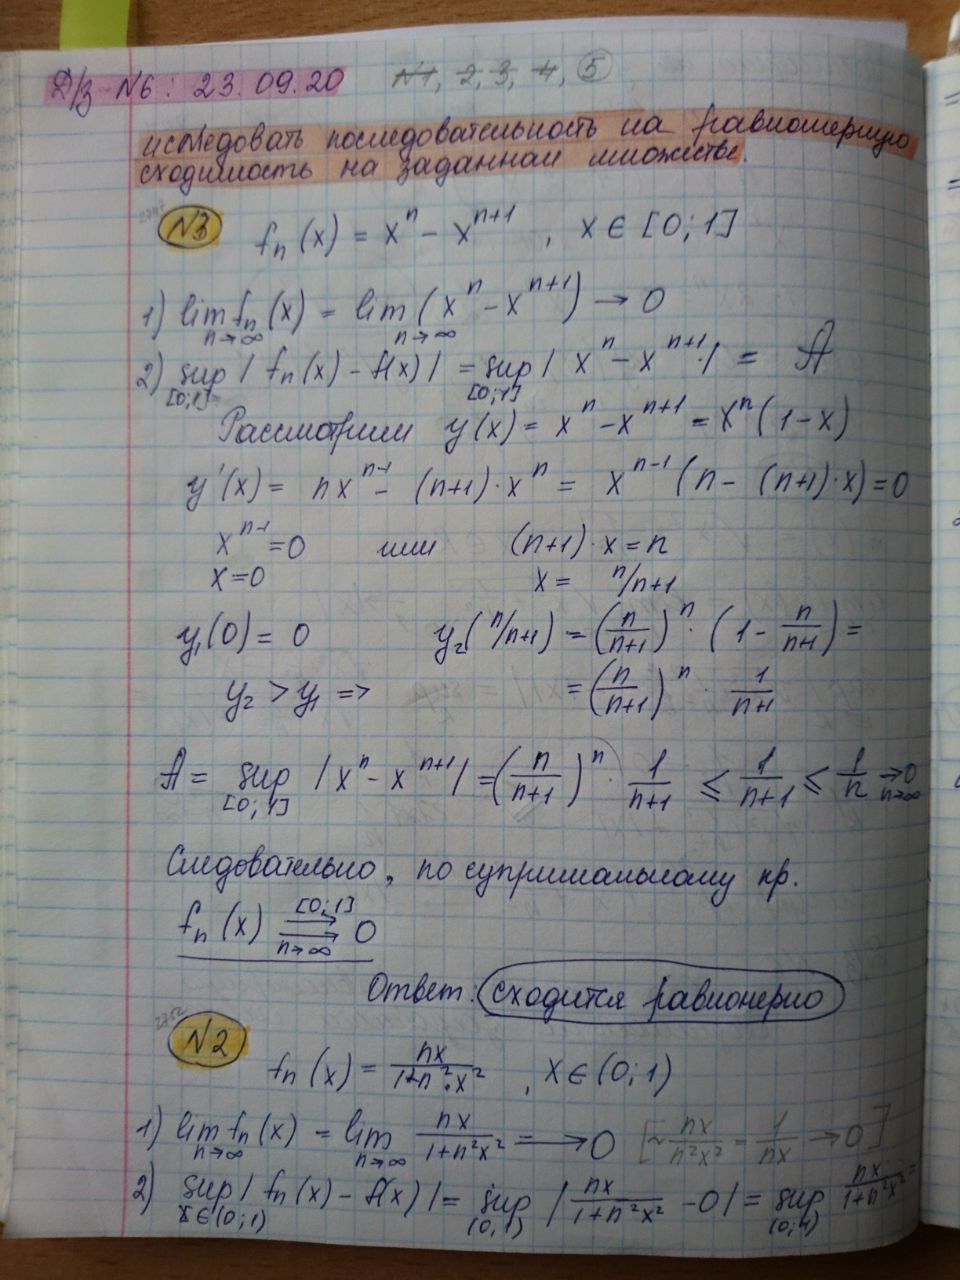 Д/з N6: 23.09.20 N1, 2, 3, 4, 5
исследовать последовательность на равномерную
сходимость на заданном множестве.
N3 fn(x) = x^n - x^(n+1), x ∈ [0;1]
1) lim n→∞ fn(x) = lim n→∞ (x^n - x^(n+1)) → 0
2) sup [0;1] |fn(x) - f(x)| = sup [0;1] |x^n - x^(n+1)| = A
Рассмотрим y(x) = x^n - x^(n+1) = x^n (1-x)
y'(x) = nx^(n-1) - (n+1)·x^n = x^(n-1) (n - (n+1)·x) = 0
x^(n-1) = 0 или (n+1)·x = n
x=0 x = n/n+1
y₁(0) = 0 y₂(n/n+1) = (n/(n+1))^n · (1 - n/(n+1)) =
y₂ > y₁ => = (n/(n+1))^n · 1/(n+1)
A = sup [0;1] |x^n - x^(n+1)| = (n/(n+1))^n · 1/(n+1) ≤ 1/(n+1) ≤ 1/n →0 n→∞
Следовательно, по супримальному кр.
fn(x) ⇉ [0;1] n→∞ 0
Ответ: сходится равномерно
2752
N2 fn(x) = nx/(1+n²·x²), x ∈ (0;1)
1) lim n→∞ fn(x) = lim n→∞ nx/(1+n²x²) = → 0 [~ nx/(n²x²) = 1/(nx) → 0]
2) sup x∈(0;1) |fn(x) - f(x)| = sup (0,1) |nx/(1+n²x²) - 0| = sup (0;1) nx/(1+n²x²) =